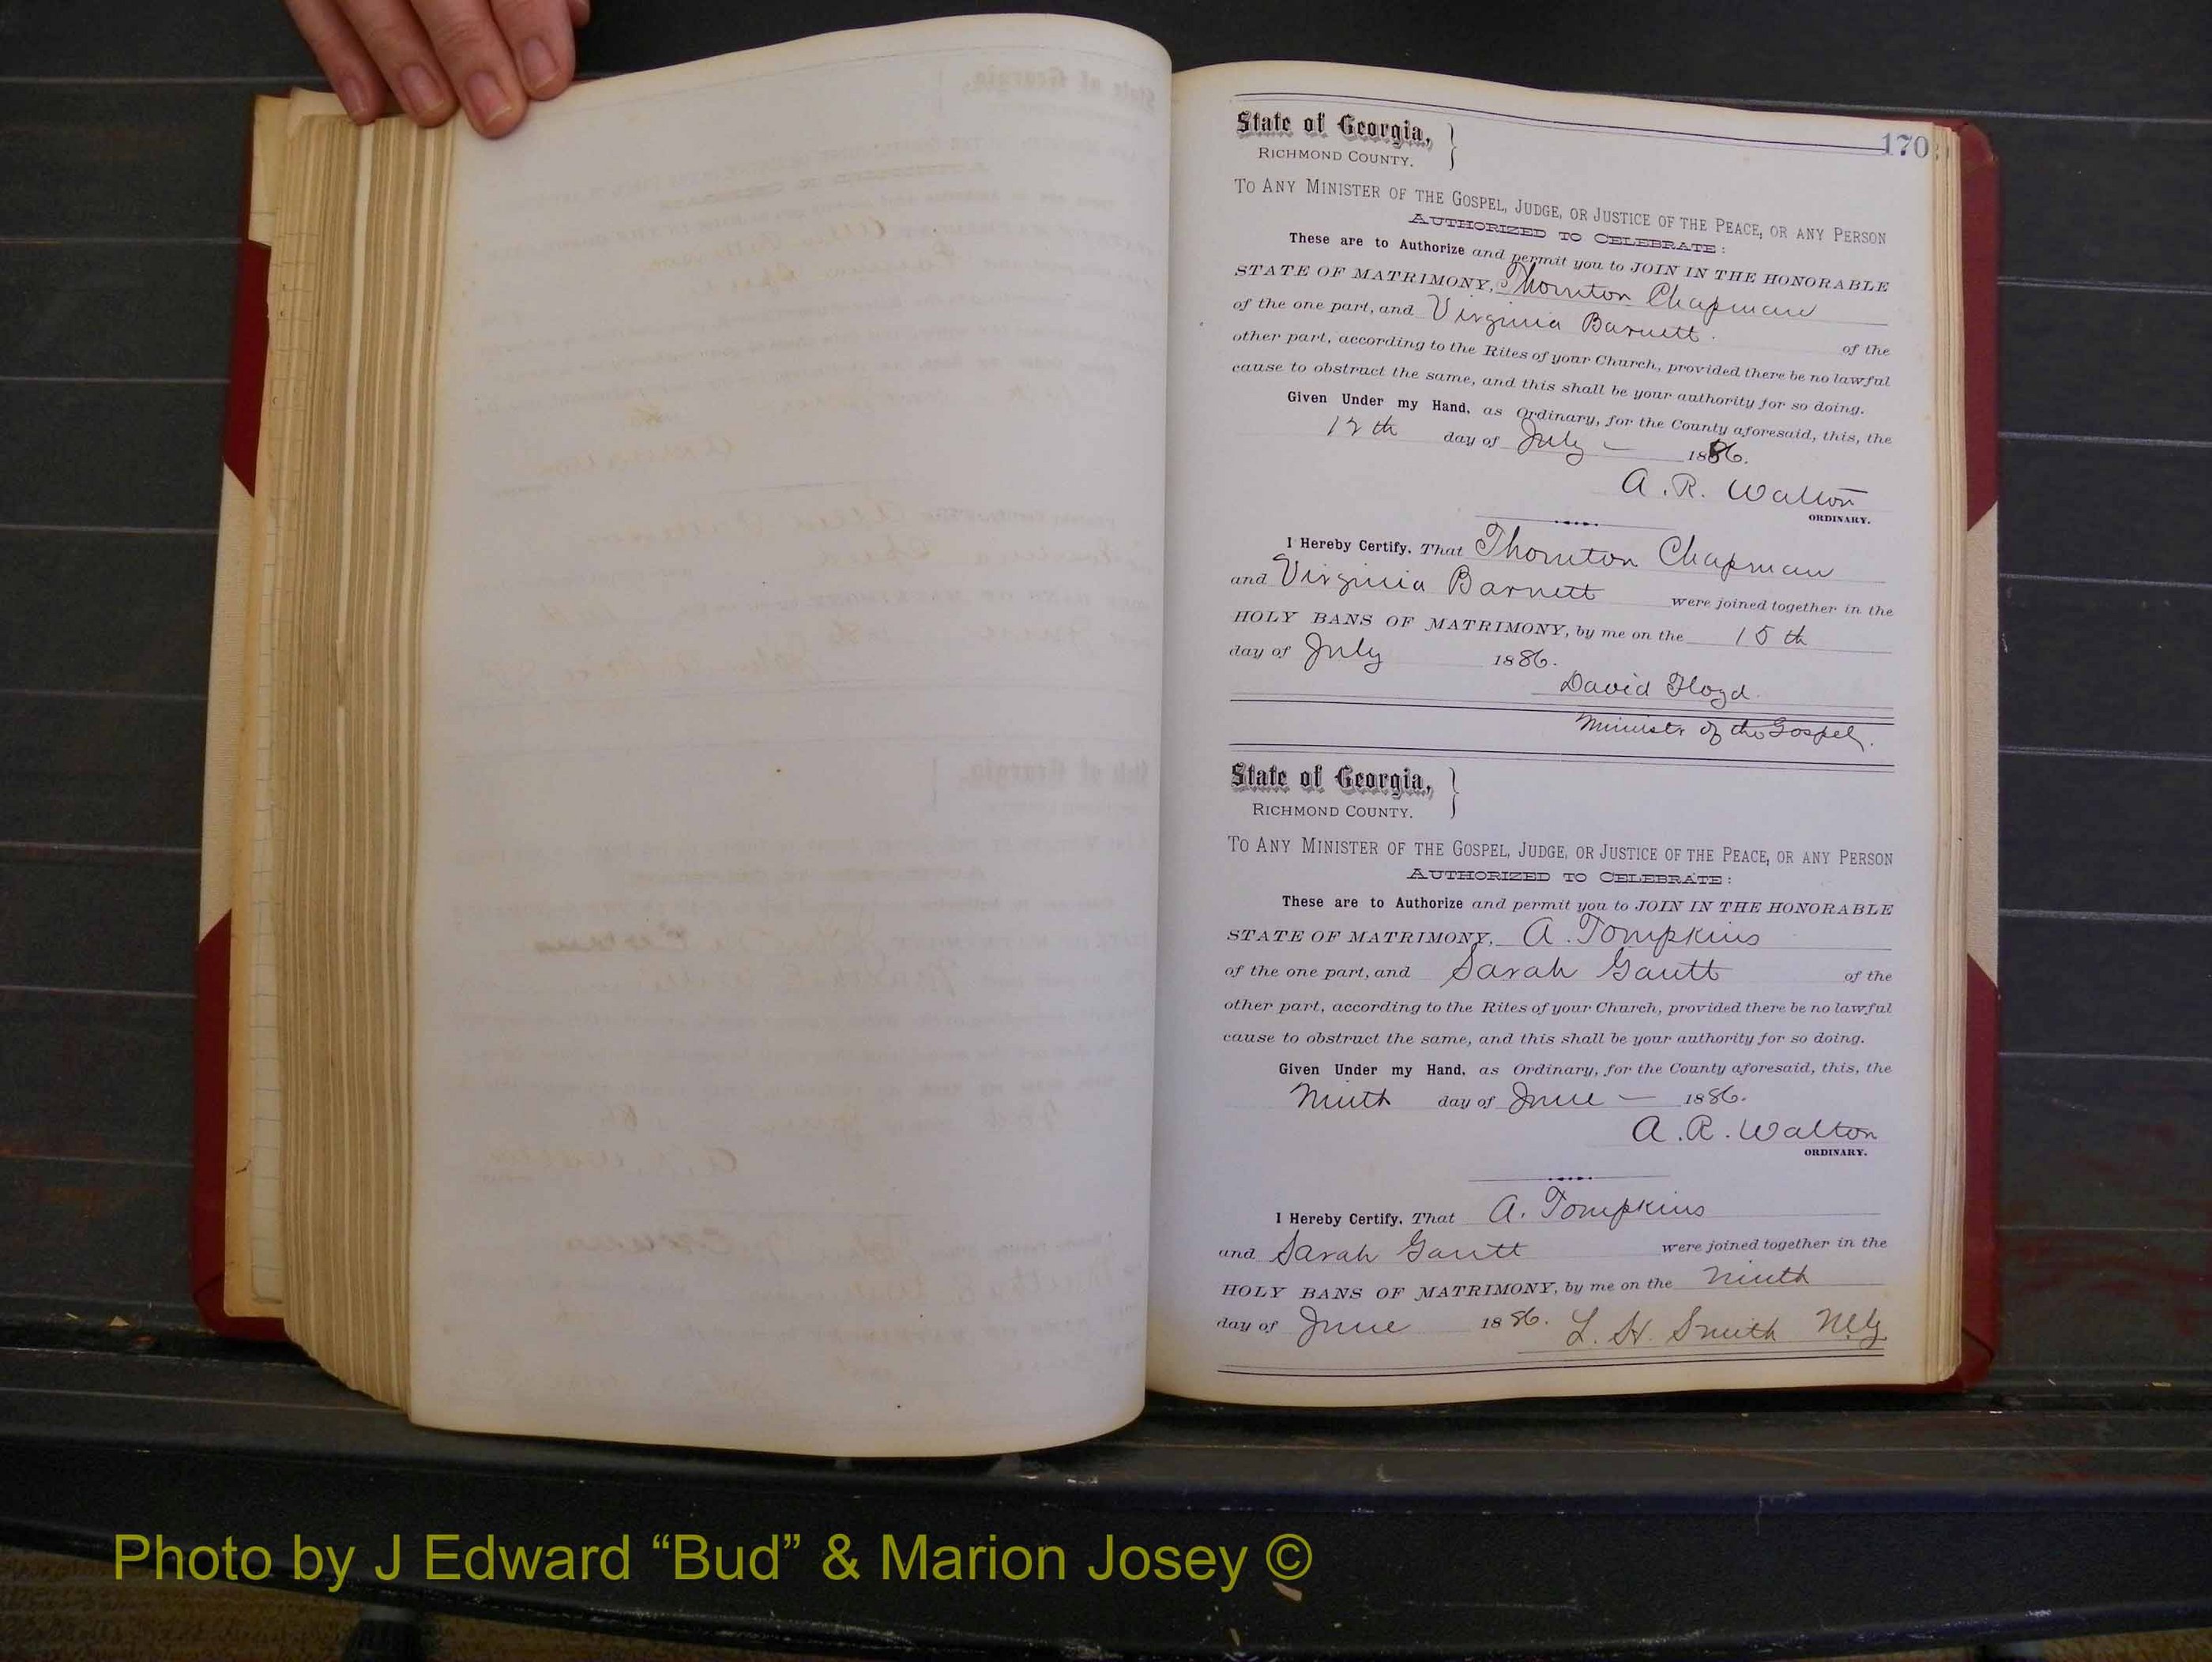 170
State of Georgia,
RICHMOND COUNTY.
TO ANY MINISTER OF THE GOSPEL, JUDGE, OR JUSTICE OF THE PEACE, OR ANY PERSON
AUTHORIZED TO CELEBRATE:
These are to Authorize and permit you to JOIN IN THE HONORABLE
STATE OF MATRIMONY, Thornton Chapman
of the one part, and Virginia Barnett. of the
other part, according to the Rites of your Church, provided there be no lawful
cause to obstruct the same, and this shall be your authority for so doing.
Given Under my Hand, as Ordinary, for the County aforesaid, this, the
12th day of July — 1886.
A. R. Walton
ORDINARY.
I Hereby Certify, That Thornton Chapman
and Virginia Barnett were joined together in the
HOLY BANS OF MATRIMONY, by me on the 15th
day of July 1886.
David Floyd.
Minister of the Gospel.
State of Georgia,
RICHMOND COUNTY.
TO ANY MINISTER OF THE GOSPEL, JUDGE, OR JUSTICE OF THE PEACE, OR ANY PERSON
AUTHORIZED TO CELEBRATE:
These are to Authorize and permit you to JOIN IN THE HONORABLE
STATE OF MATRIMONY, A. Tompkins
of the one part, and Sarah Gantt of the
other part, according to the Rites of your Church, provided there be no lawful
cause to obstruct the same, and this shall be your authority for so doing.
Given Under my Hand, as Ordinary, for the County aforesaid, this, the
Ninth day of June — 1886.
A. R. Walton
ORDINARY.
I Hereby Certify, That A. Tompkins
and Sarah Gantt were joined together in the
HOLY BANS OF MATRIMONY, by me on the ninth
day of June 1886. L. H. Smith
Photo by J Edward “Bud” & Marion Josey ©